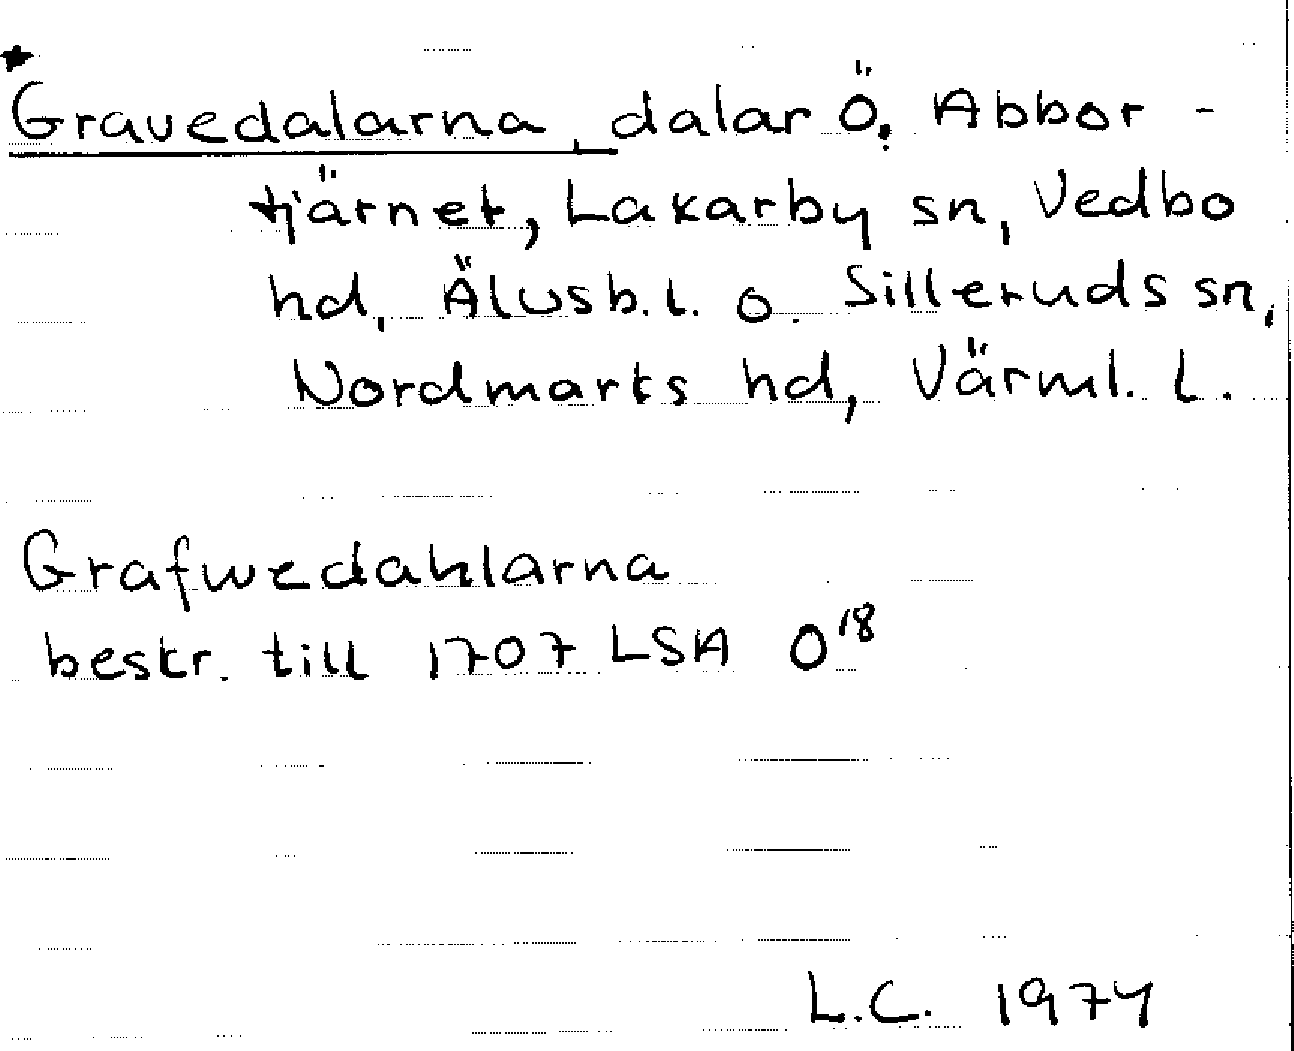 *Gravedalarna, dalar Ö. Abbor-
tjärnet, Lakarby sn, Vedbo
hd, Älvsb. l. o. Silleruds sn,
Nordmarks hd, Värml. l.
Grafwedahlarna
beskr. till 1707 LSA O18
L.C. 1974